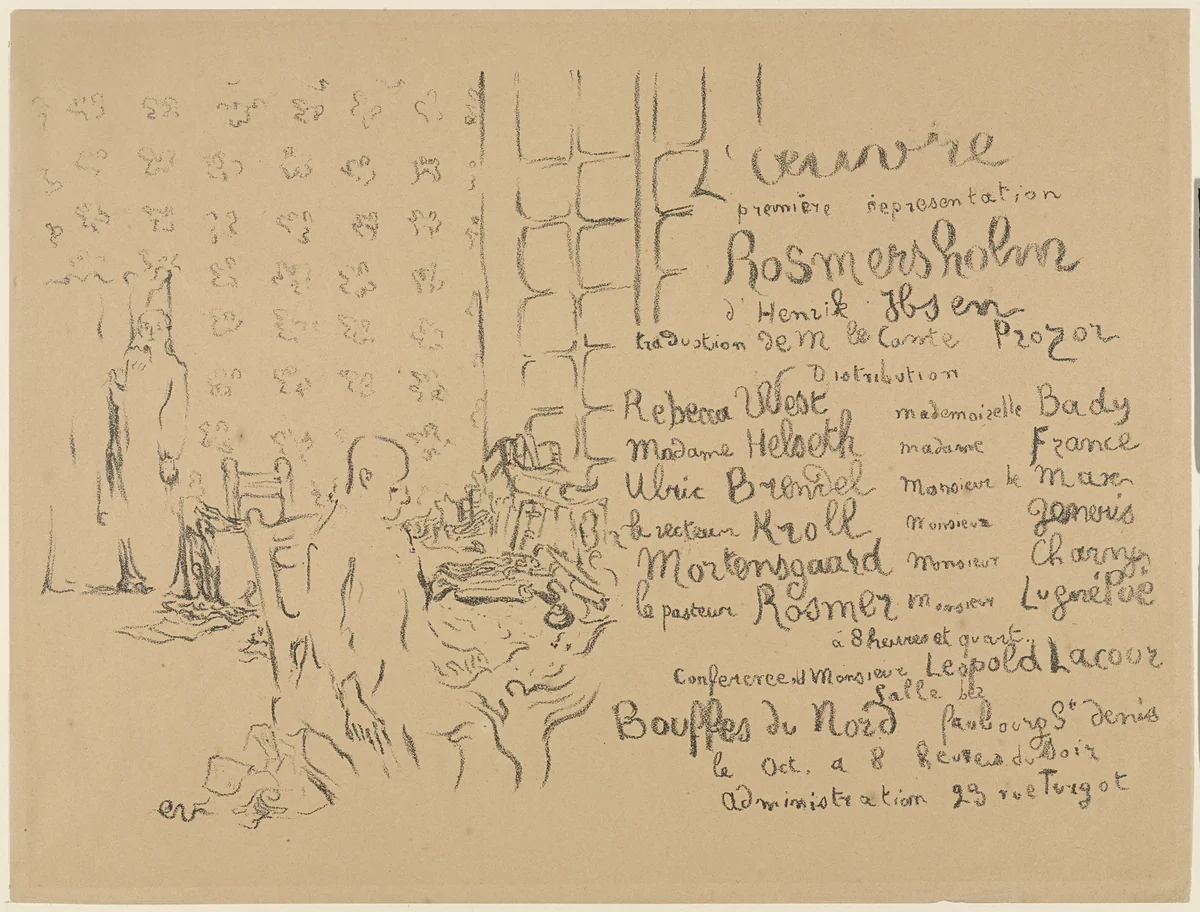 L'œuvre
première représentation
Rosmersholm
d'Henrik Ibsen
traduction de M le Comte Prozor
Distribution
Rebecca West mademoiselle Bady
Madame Helseth madame France
Ulric Brendel Monsieur de Max
le recteur Kroll Monsieur Gemeris
Mortensgaard Monsieur Charny
le pasteur Rosmer Monsieur Lugné Poë
à 8 heures et quart
Conference d Monsieur Leopold Lacour
Salle des
Bouffes du Nord faubourg St denis
le Oct. a 8 heures du Soir
administration 23 rue Turgot
ev